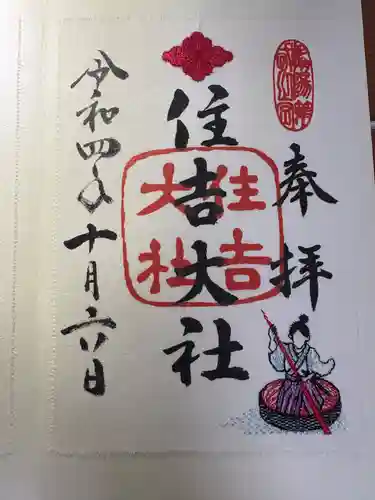 奉拝
住吉大社
住吉
大社
令和四年十月六日